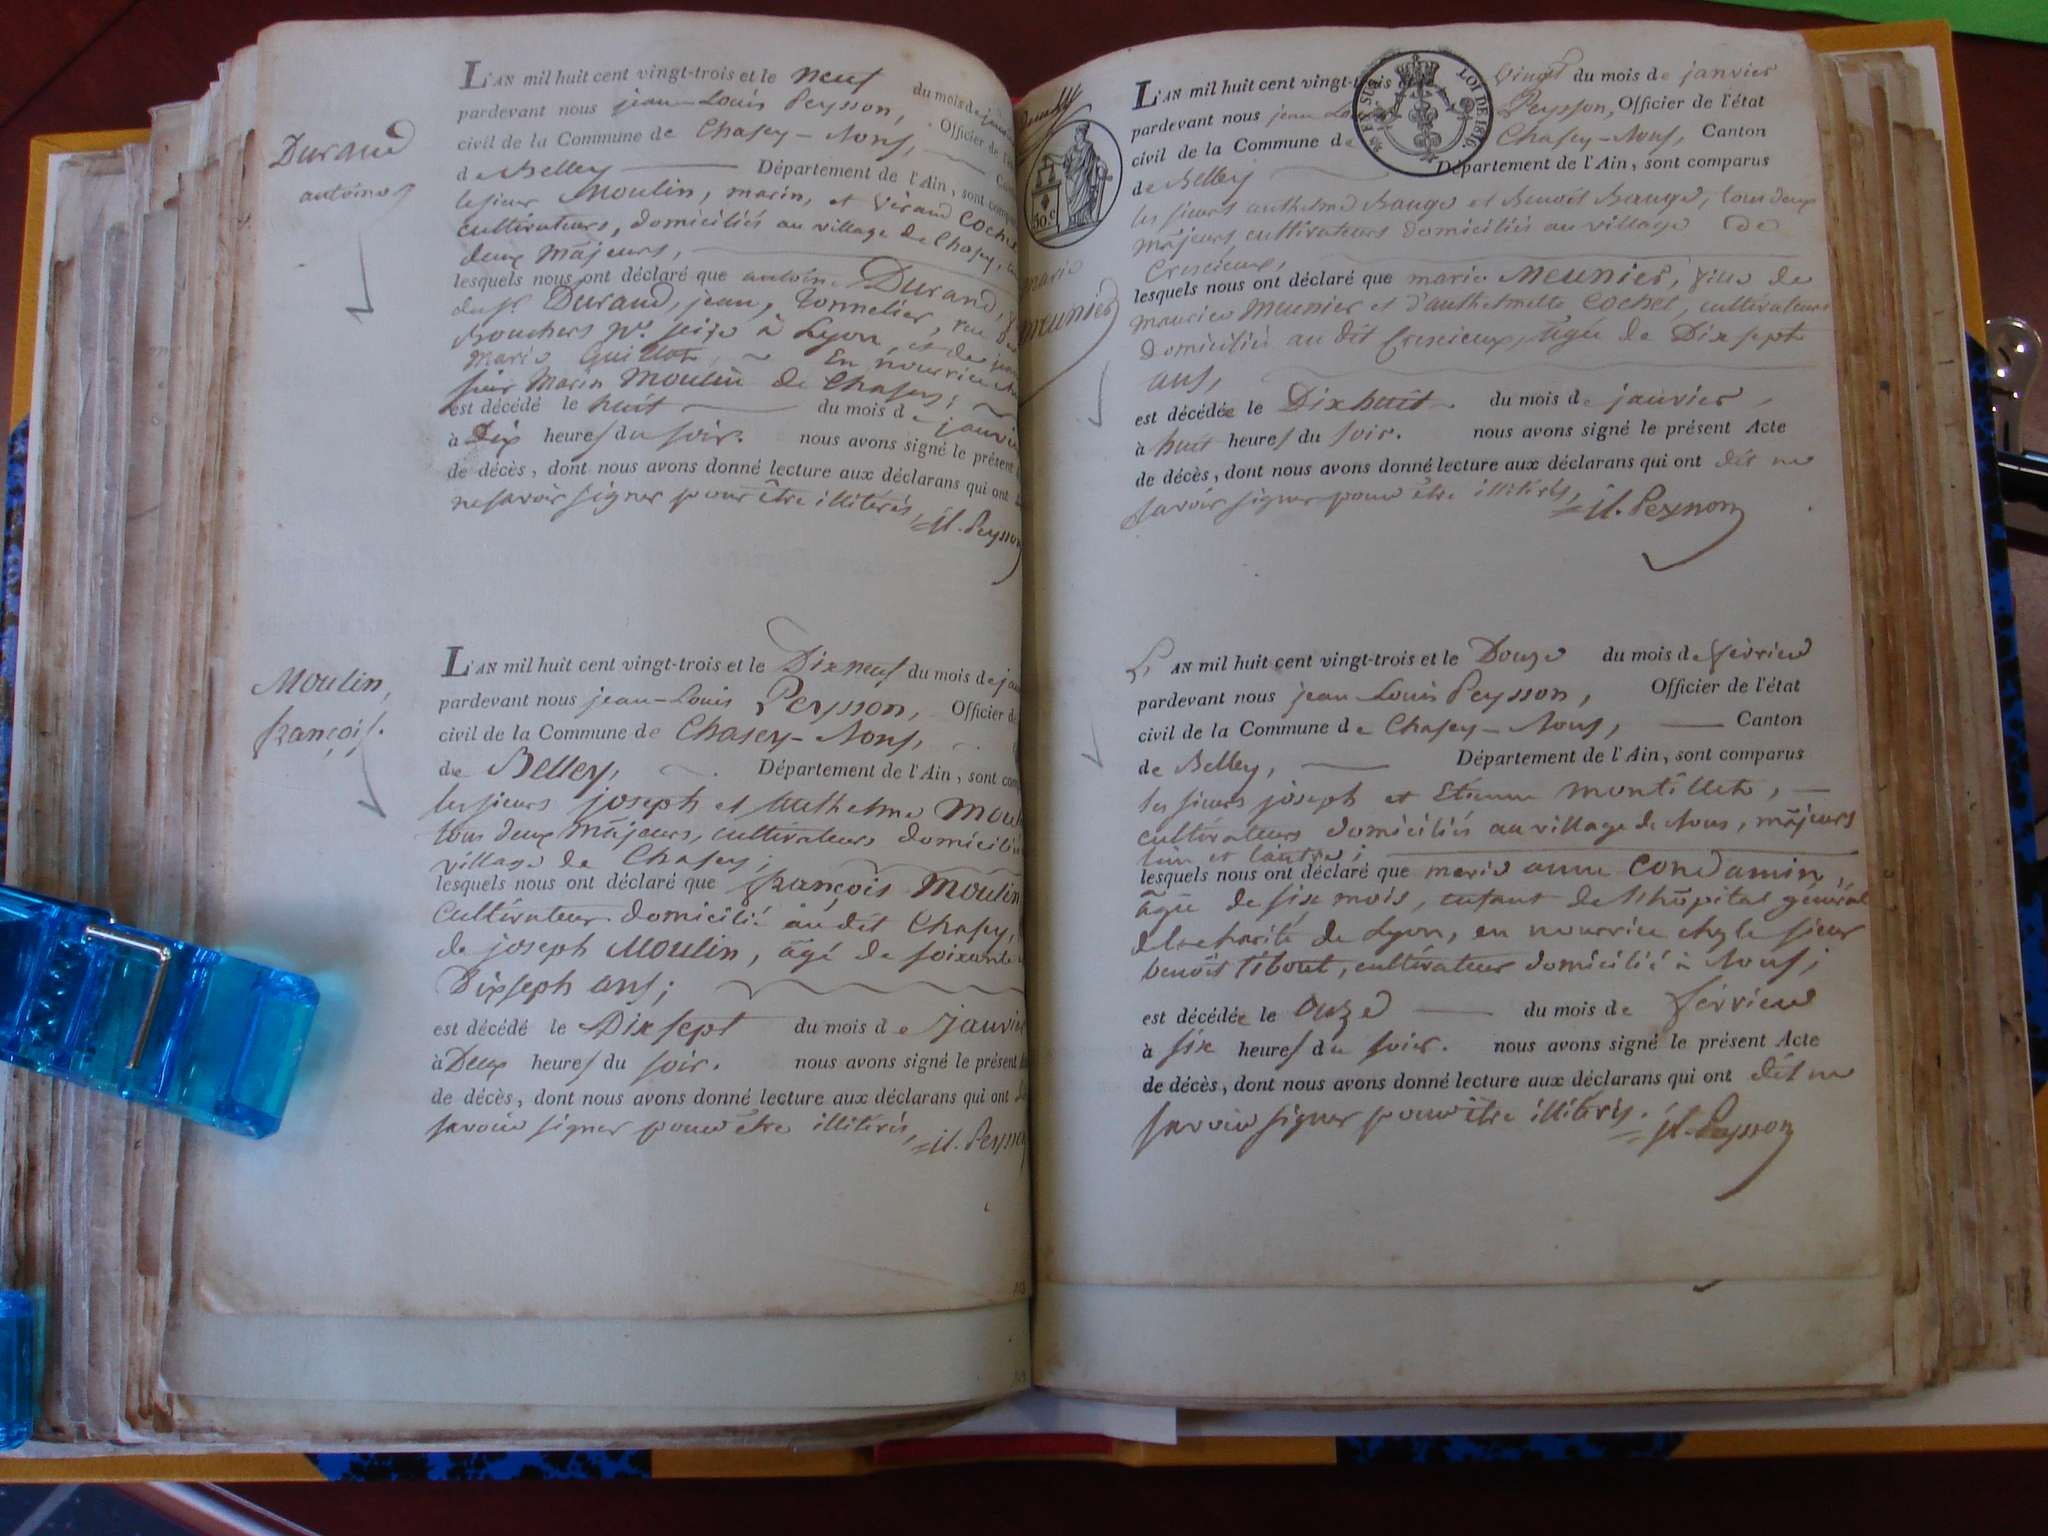 Durand
antoine
L'AN mil huit cent vingt-trois et le neuf du mois de janvier
pardevant nous jean-Louis Peysson, Officier de l'
civil de la Commune de Chasey-Nons,
de Belley Département de l'Ain, sont comp
le sieur Moulin, marin, et Véraud Coche
cultivateurs, domiciliés au village de Chasey,
deux majeurs,
lesquels nous ont déclaré que antoine Durand,
du sr. Durand, jean, Tonnelier, rue des
Bouchers no. seize à Lyon, et de
marie Guillot, En nourrice
sieur Marin Moulin de Chasey;
est décédé le huit du mois de janvie
à Dix heures du soir. nous avons signé le présent
de décès, dont nous avons donné lecture aux déclarans qui ont
ne savoir signer pour être illitérés, jl. Peysson
Moulin,
françois.
L'AN mil huit cent vingt-trois et le Dixneuf du mois de ja
pardevant nous jean-Louis Peysson, Officier de
civil de la Commune de Chasey-Nons,
de Belley, Département de l'Ain, sont com
les sieurs joseph et Anthelme Mou
tous deux majeurs, cultivateurs domiciliés
village de Chasey;
lesquels nous ont déclaré que françois Moulin
Cultivateur domicilié au dit Chasey,
de joseph Moulin, âgé de soixante
Dixseph ans;
est décédé le Dixsept du mois de Janvie
à Deux heures du soir. nous avons signé le présent
de décès, dont nous avons donné lecture aux déclarans qui ont
savoir signer pour être illitérés, jl. Peysson
50.c
marie
meunier
LOI DE 1816.
L'AN mil huit cent vingt-trois et le Vingt du mois de janvier
pardevant nous jean Louis Peysson, Officier de l'état
civil de la Commune de Chasey-Nons, Canton
de Belley Département de l'Ain, sont comparus
les sieurs anthelme Bauge et Benoît Bauge, tous deux
majeurs cultivateurs domiciliés au village de
Crescieux,
lesquels nous ont déclaré que marie Meunier, fille de
maurice Meunier et d'anthelmette Cochet, cultivateurs
domiciliés au dit Crescieux, âgée de Dix sept
ans,
est décédée le Dixhuit du mois de janvier,
à huit heures du soir. nous avons signé le présent Acte
de décès, dont nous avons donné lecture aux déclarans qui ont dit ne
savoir signer pour être illitérés, jl. Peysson
L'AN mil huit cent vingt-trois et le Douze du mois de février
pardevant nous jean-Louis Peysson, Officier de l'état
civil de la Commune de Chasey-Nons, Canton
de Belley, Département de l'Ain, sont comparus
les sieurs joseph et Etienne montillet,
cultivateurs domiciliés au village de Nons, majeurs
l'un et l'autre;
lesquels nous ont déclaré que marie anne Condamin,
âgée de six mois, enfant de l'hôpital général
de la charité de Lyon, en nourrice chez le sieur
benoît tibout, cultivateur domicilié à Nons;
est décédée le onze du mois de février
à six heures du soir. nous avons signé le présent Acte
de décès, dont nous avons donné lecture aux déclarans qui ont dit ne
savoir signer pour être illitérés. jl. Peysson